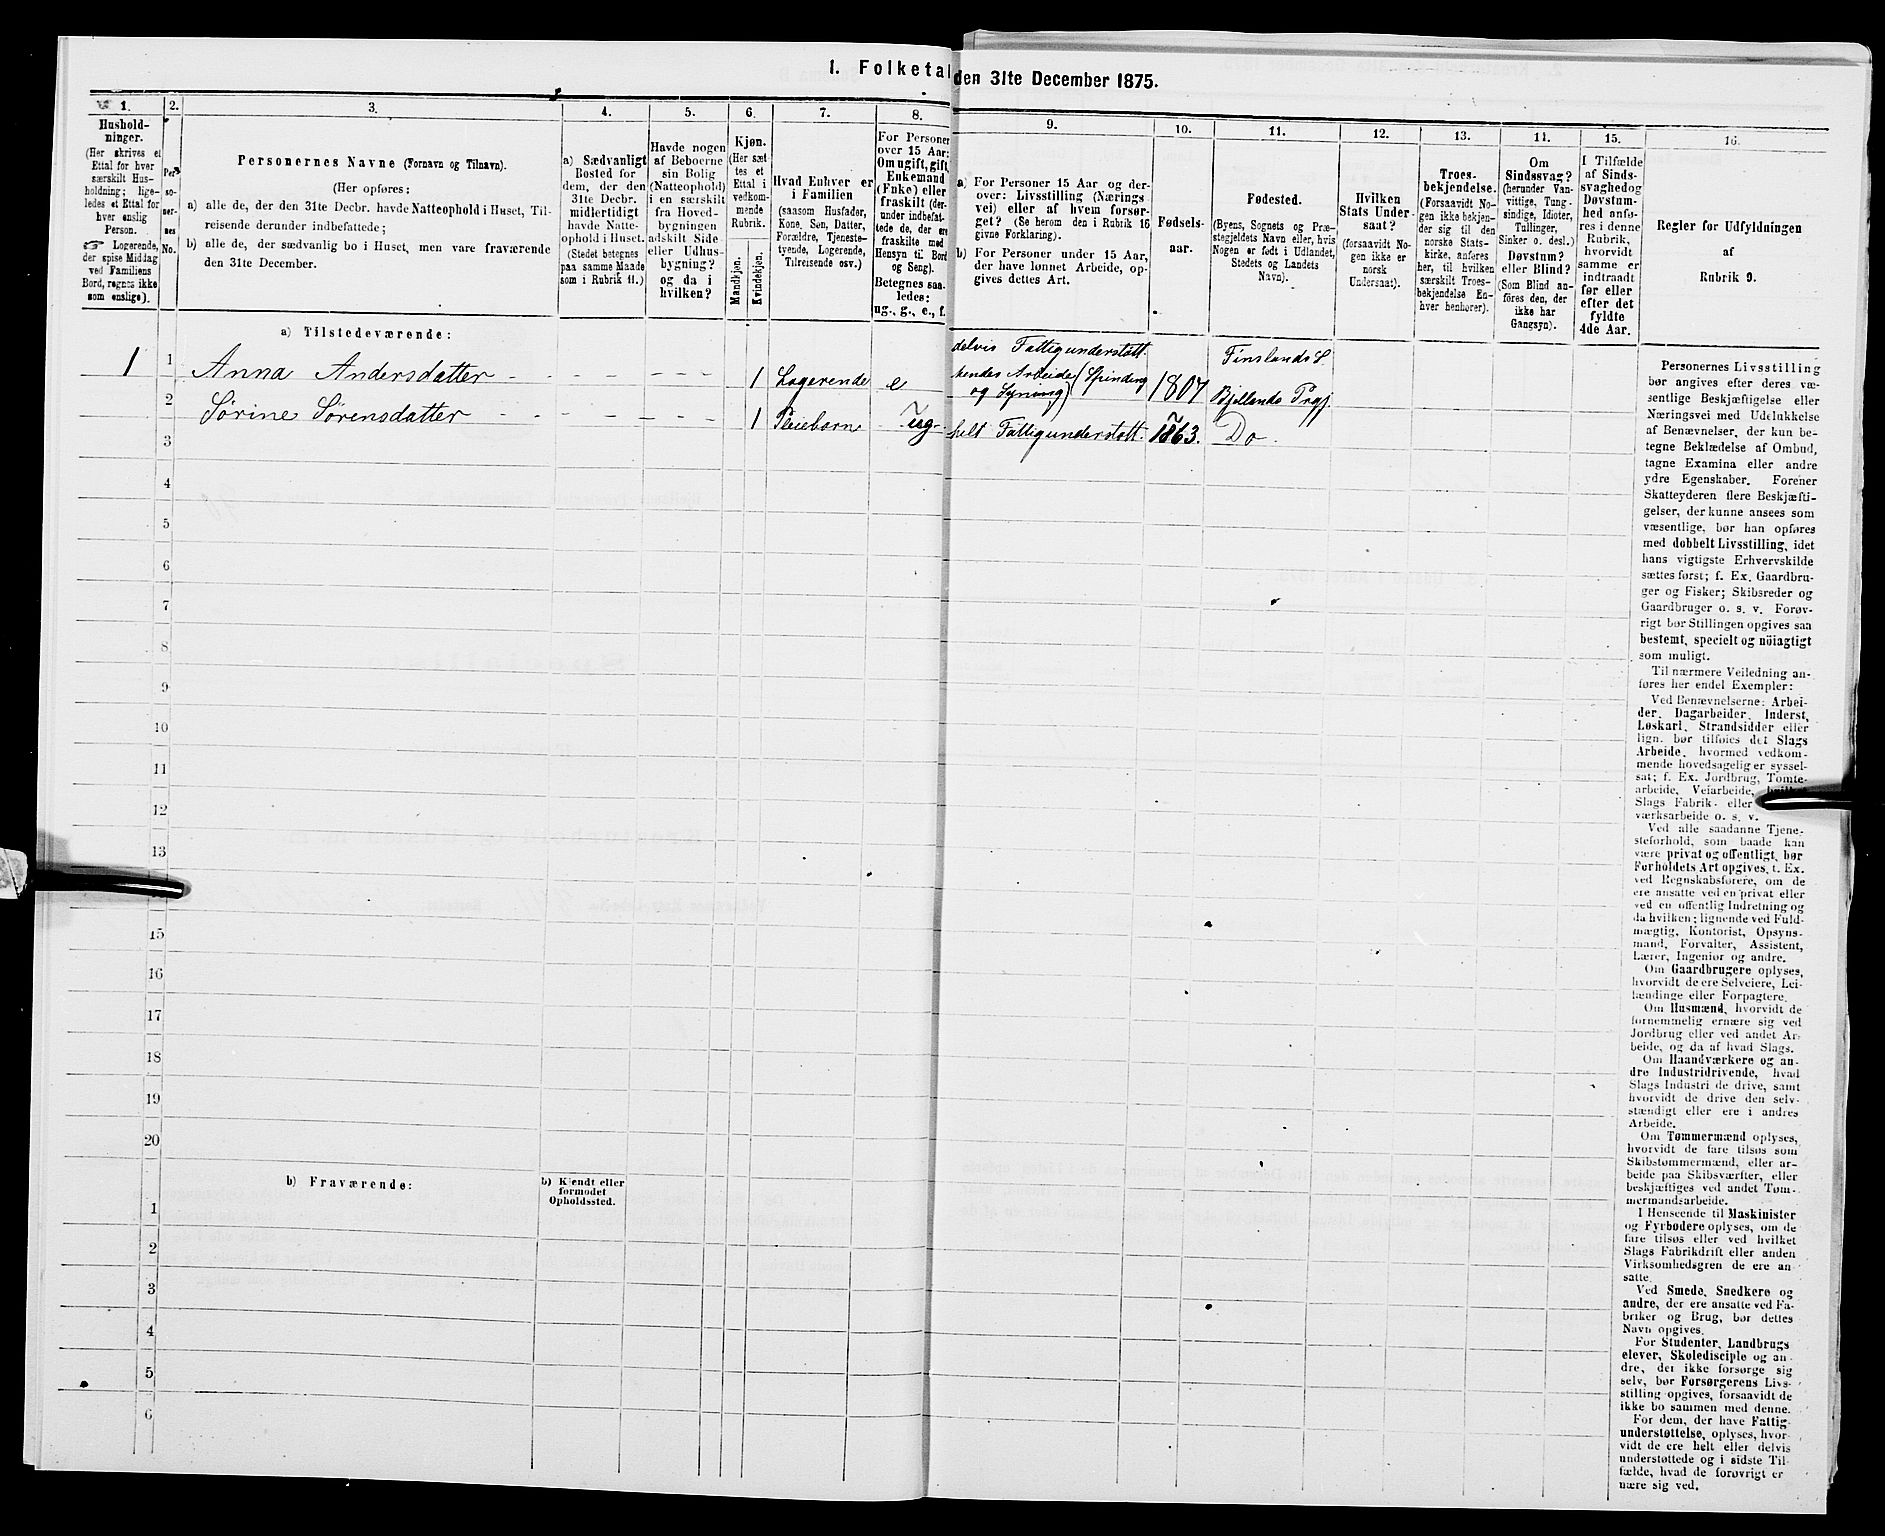 1. Folketal den 31te December 1875.
1.
Hushold-
ninger.
(Her skrives et
Ettal for hver
særskilt Hus-
holdning; lige-
ledes et Ettal for
hver enslig
Person.
☞ Logerende,
der spise Middag
ved Familiens
Bord, regnes ikke
som enslige).
2.
Per-
so-
ner-
nes
No.
3.
Personernes Navne (Fornavn og Tilnavn).
(Her opføres:
a) alle de, der den 31te Decbr. havde Natteophold i Huset, Til-
reisende derunder indbefattede;
b) alle de, der sædvanlig bo i Huset, men vare fraværende
den 31te December.
4.
a) Sædvanligt
Bosted for
dem, der den
31te Decbr.
midlertidigt
havde Natte-
ophold i Huset.
(Stedet betegnes
paa samme Maade
som i Rubrik 11.)
5.
Havde nogen
af Beboerne
sin Bolig
(Natteophold)
i en særskilt
fra Hoved-
bygningen
adskilt Side-
eller Udhus-
bygning?
og da i
hvilken?
6.
Kjøn.
(Her sæt-
tes et
Ettal i
vedkom-
mende
Rubrik.
Mandkjøn.
Kvindekjøn.
7.
Hvad Enhver er
i Familien
(saasom Husfader,
Kone, Søn, Datter,
Forældre, Tjeneste-
tyende, Logerende,
Tilreisende osv.)
8.
For Personer
over 15 Aar:
Om ugift, gift,
Enkemand
(Enke) eller
fraskilt (der-
under indbefat-
tede de, der ere
fraskilte med
Hensyn til Bord
og Seng).
Betegnes saa-
ledes:
ug., g., e., f.
9.
a) For Personer 15 Aar og der-
over: Livsstilling (Nærings-
vei) eller af hvem forsør-
get? (Se herom den i Rubrik 16
givne Forklaring).
b) For Personer under 15 Aar,
der have lønnet Arbeide, op-
gives dettes Art.
10.
Fødsels-
aar.
11.
Fødested.
(Byens, Sognets og Præ-
stegjeldets Navn eller, hvis
Nogen er født i Udlandet,
Stedets og Landets
Navn).
12.
Hvilken
Stats Under-
saat?
(forsaavidt No-
gen ikke er
norsk
Undersaat).
13.
Troes-
bekjendelse.
(Forsaavidt No-
gen ikke bekjen-
der sig til den
norske Stats-
kirke, anføres
her, til hvilken
særskilt Troes-
bekjendelse En-
hver henhører).
14.
Om
Sindssvag?
(herunder Van-
vittige, Tung-
sindige, Idioter,
Tullinger,
Sinker o. desl.)
Døvstum?
eller Blind?
(Som Blind an-
føres den, der
ikke har
Gangsyn).
15.
I Tilfælde
af Sinds-
svaghed og
Døvstum-
hed anfø-
res i denne
Rubrik,
hvorvidt
samme er
indtraadt
før eller
efter det
fyldte
4de Aar.
16.
Regler for Udfyldningen
af
Rubrik 9.
a) Tilstedeværende:
1 1 Anna Andersdatter 1 Logerende e delvis Fattigunderstøtt.
kendes Arbeide (Spinding
og Syning) 1807 Finslands S.
Bjellands Prgj.
2 Sørine Sørensdatter 1 Pleiebarn ug helt Fattigunderstøtt. 1863. Do
3
4
5
6
7
8
9
10
11
12
13
15
16
17
18
19
20
b) Fraværende:
b) Kjendt eller
formodet
Opholdssted.
1
2
3
4
5
6
Personernes Livsstilling
bør angives efter deres væ-
sentlige Beskjæftigelse eller
Næringsvei med Udelukkelse
af Benævnelser, der kun be-
tegne Beklædelse af Ombud,
tagne Examina eller andre
ydre Egenskaber. Forener
Skatteyderen flere Beskjæfti-
gelser, der kunne ansees som
væsentlige, bør han opføres
med dobbelt Livsstilling, idet
hans vigtigste Erhvervskilde
sættes først; f. Ex. Gaardbru-
ger og Fisker; Skibsreder og
Gaardbruger o. s. v. Forøv-
rigt bør Stillingen opgives saa
bestemt, specielt og nöiagtigt
som muligt.
Til nærmere Veiledning an-
føres her endel Exempler:
Ved Benævnelserne: Arbei-
der, Dagarbeider, Inderst,
Løskarl, Strandsidder eller
lign. bør tilføies det Slags
Arbeide, hvormed vedkom-
mende hovedsagelig er syssel-
sat; f. Ex. Jordbrug, Tomte-
arbeide, Veiarbeide, hvilket
Slags Fabrik- eller
værksarbeide o. s. v.
Ved alle saadanne Tjene-
steforhold, som baade kan
være privat og offentligt, bør
Forholdets Art opgives, f. Ex.
ved Regnskabsførere, om de
ere ansatte ved en privat eller
ved en offentlig Indretning og
da hvilken; lignende ved Fuld-
mægtig, Kontorist, Opsyns-
mand, Forvalter, Assistent,
Lærer, Ingeniør og andre.
Om Gaardbrugere oplyses,
hvorvidt de ere Selveiere, Lei-
lændinge eller Forpagtere.
Om Husmænd, hvorvidt de
fornemmelig ernære sig ved
Jordbrug eller ved andet Ar-
beide, og da af hvad Slags.
Om Haandværkere og an-
dre Industridrivende, hvad
Slags Industri de drive, samt
hvorvidt de drive den selv-
stændigt eller ere i andres
Arbeide.
Om Tømmermænd oplyses,
hvorvidt de fare tilsøs som
Skibstømmermænd, eller ar-
beide paa Skibsværfter, eller
beskjæftiges ved andet Tøm-
mermandsarbeide.
I Henseende til Maskinister
og Fyrbødere oplyses, om de
fare tilsøs eller ved hvilket
Slags Fabrikdrift eller anden
Virksomhedsgren de ere an-
satte.
Ved Smede, Snedkere og
andre, der ere ansatte ved Fa-
briker og Brug, bør dettes
Navn opgives.
For Studenter, Landbrugs-
elever, Skoledisciple og an-
dre, der ikke forsørge sig
selv, bør Forsørgerens Livs-
stilling opgives, forsaavidt de
ikke bo sammen med denne.
For dem, der have Fattig-
understøttelse, oplyses, hvor-
vidt de ere helt eller delvis
understøttede og i sidste Til-
fælde, hvad de forøvrigt er
nære sig ved.